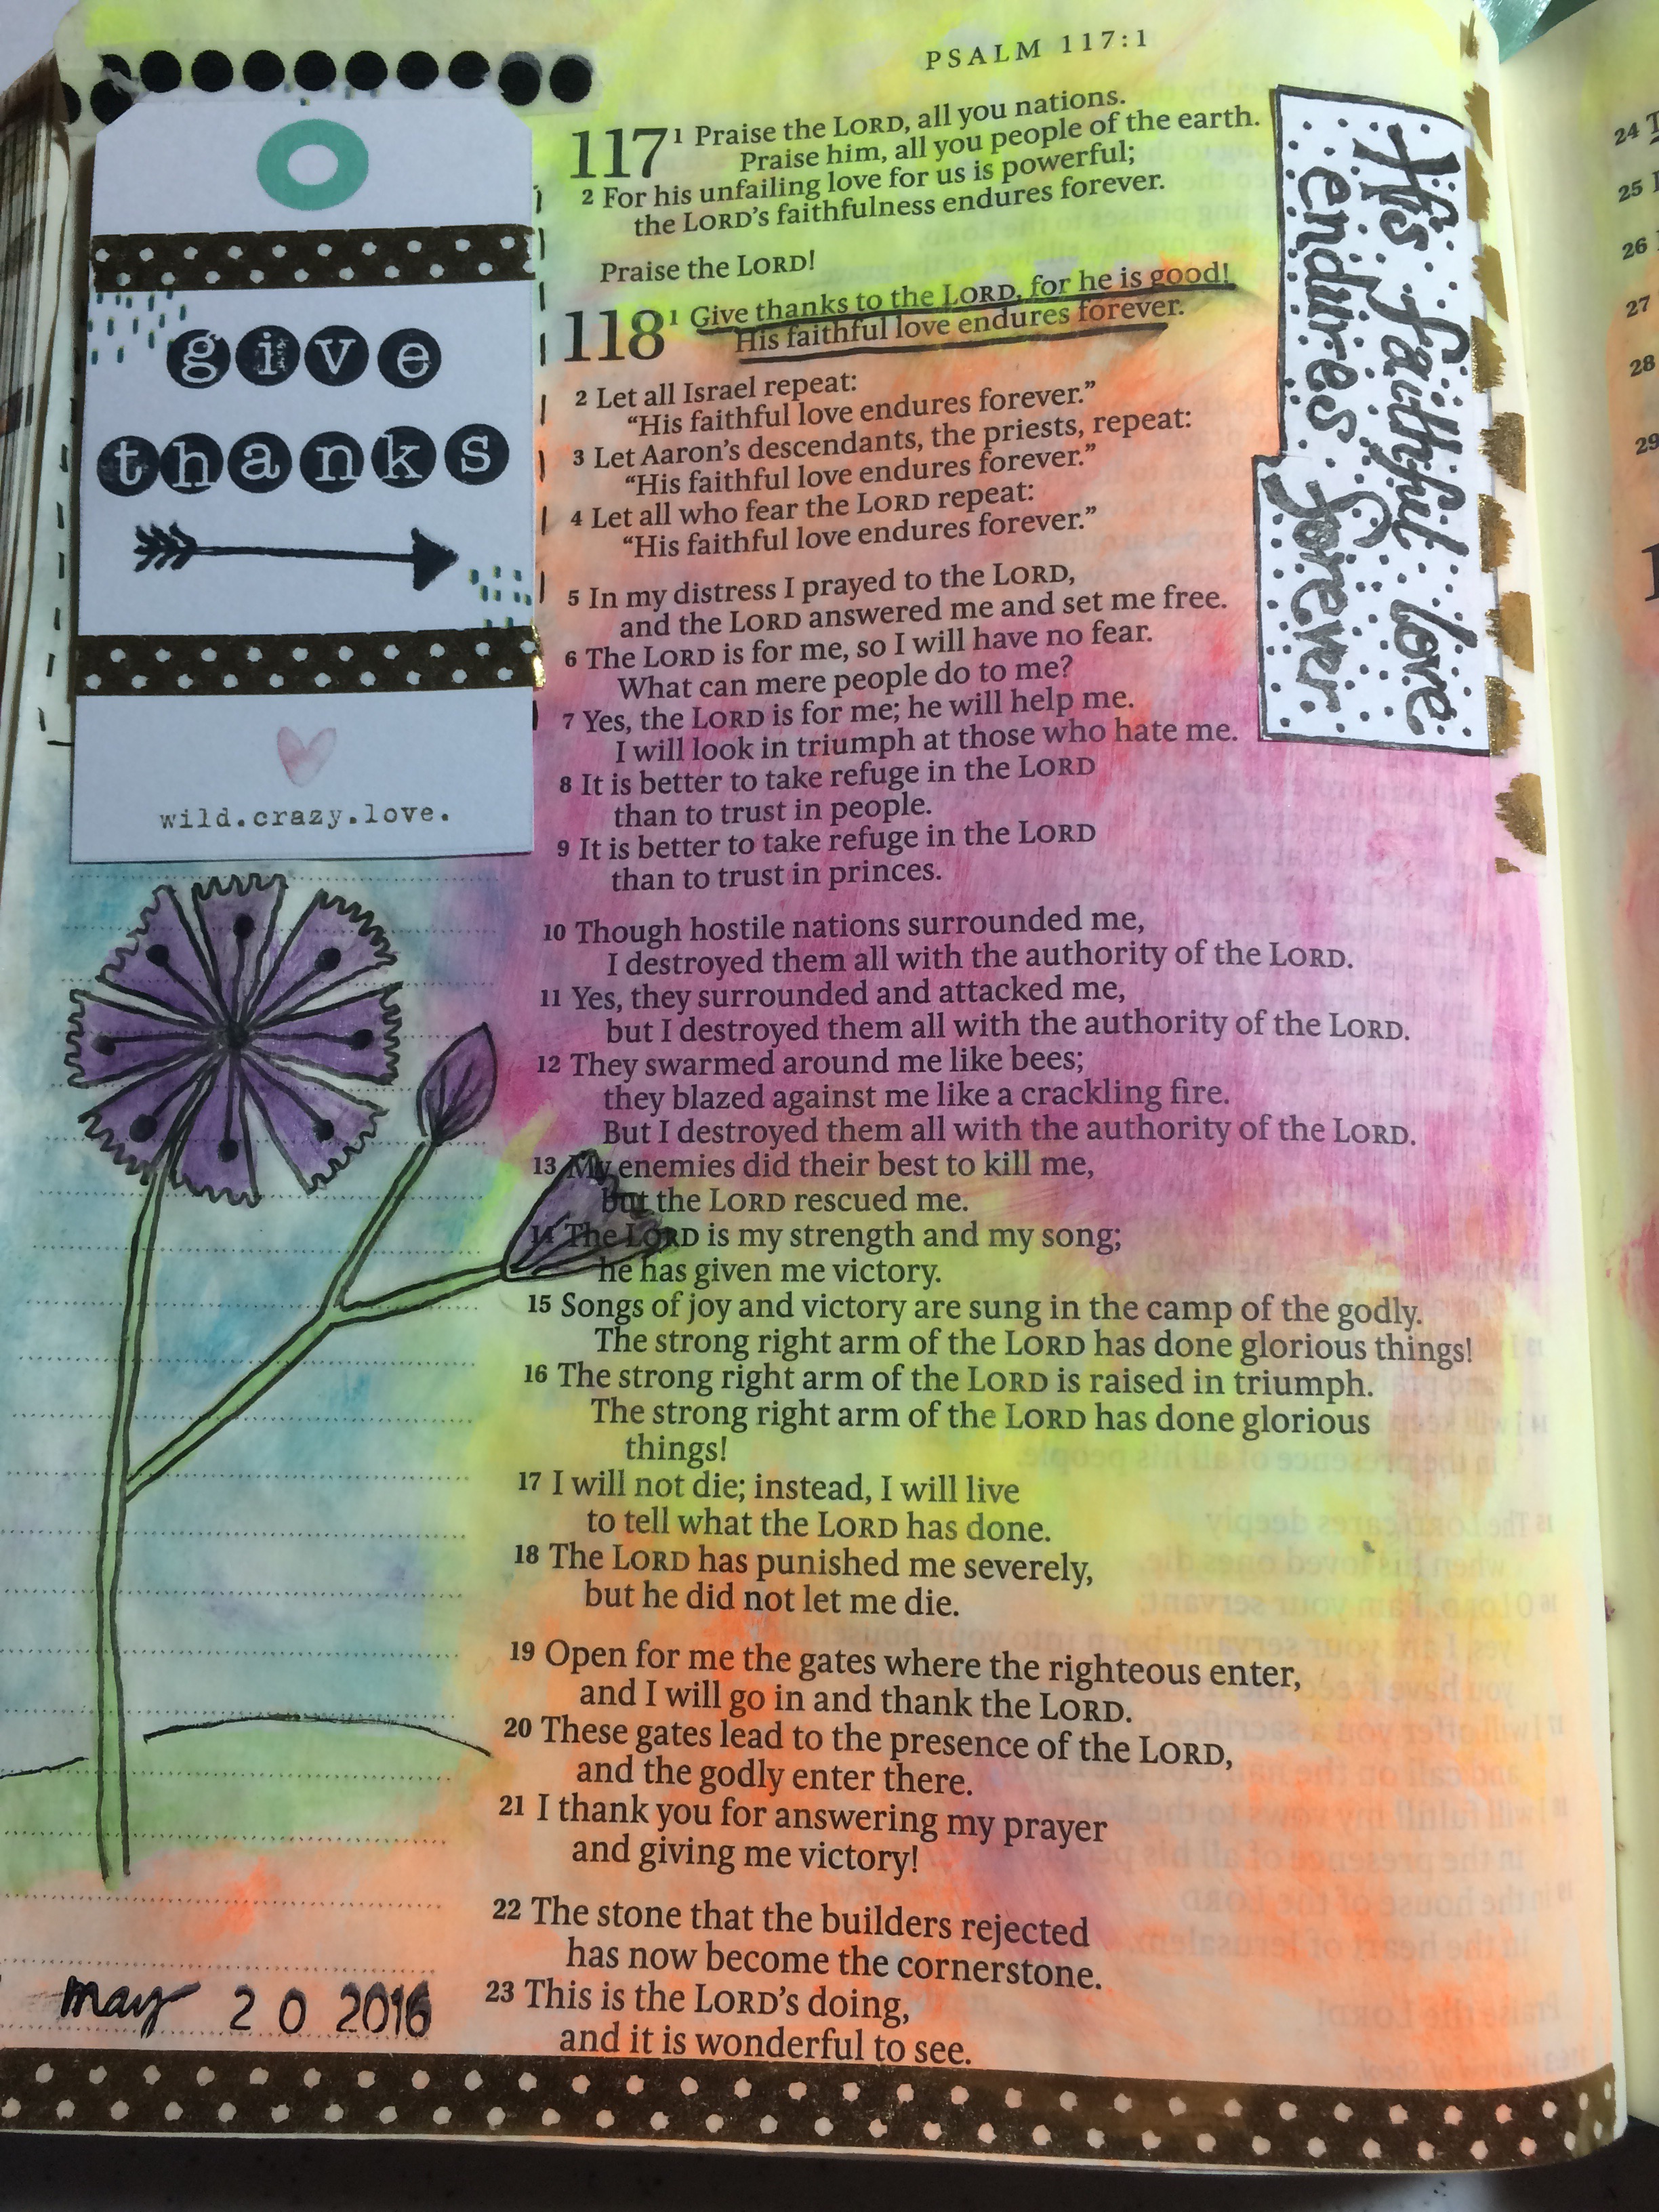 PSALM 117:1
117 1 Praise the LORD, all you nations.
Praise him, all you people of the earth.
2 For his unfailing love for us is powerful;
the LORD's faithfulness endures forever.
Praise the LORD!
118 1 Give thanks to the LORD, for he is good!
His faithful love endures forever.
2 Let all Israel repeat:
“His faithful love endures forever.”
3 Let Aaron's descendants, the priests, repeat:
“His faithful love endures forever.”
4 Let all who fear the LORD repeat:
“His faithful love endures forever.”
5 In my distress I prayed to the LORD,
and the LORD answered me and set me free.
6 The LORD is for me, so I will have no fear.
What can mere people do to me?
7 Yes, the LORD is for me; he will help me.
I will look in triumph at those who hate me.
8 It is better to take refuge in the LORD
than to trust in people.
9 It is better to take refuge in the LORD
than to trust in princes.
10 Though hostile nations surrounded me,
I destroyed them all with the authority of the LORD.
11 Yes, they surrounded and attacked me,
but I destroyed them all with the authority of the LORD.
12 They swarmed around me like bees;
they blazed against me like a crackling fire.
But I destroyed them all with the authority of the LORD.
13 My enemies did their best to kill me,
but the LORD rescued me.
14 The LORD is my strength and my song;
he has given me victory.
15 Songs of joy and victory are sung in the camp of the godly.
The strong right arm of the LORD has done glorious things!
16 The strong right arm of the LORD is raised in triumph.
The strong right arm of the LORD has done glorious
things!
17 I will not die; instead, I will live
to tell what the LORD has done.
18 The LORD has punished me severely,
but he did not let me die.
19 Open for me the gates where the righteous enter,
and I will go in and thank the LORD.
20 These gates lead to the presence of the LORD,
and the godly enter there.
21 I thank you for answering my prayer
and giving me victory!
22 The stone that the builders rejected
has now become the cornerstone.
23 This is the LORD's doing,
and it is wonderful to see.
give
thanks
wild.crazy.love.
may 20 2016
His faithful love
endures forever
24
25
26
27
28
29